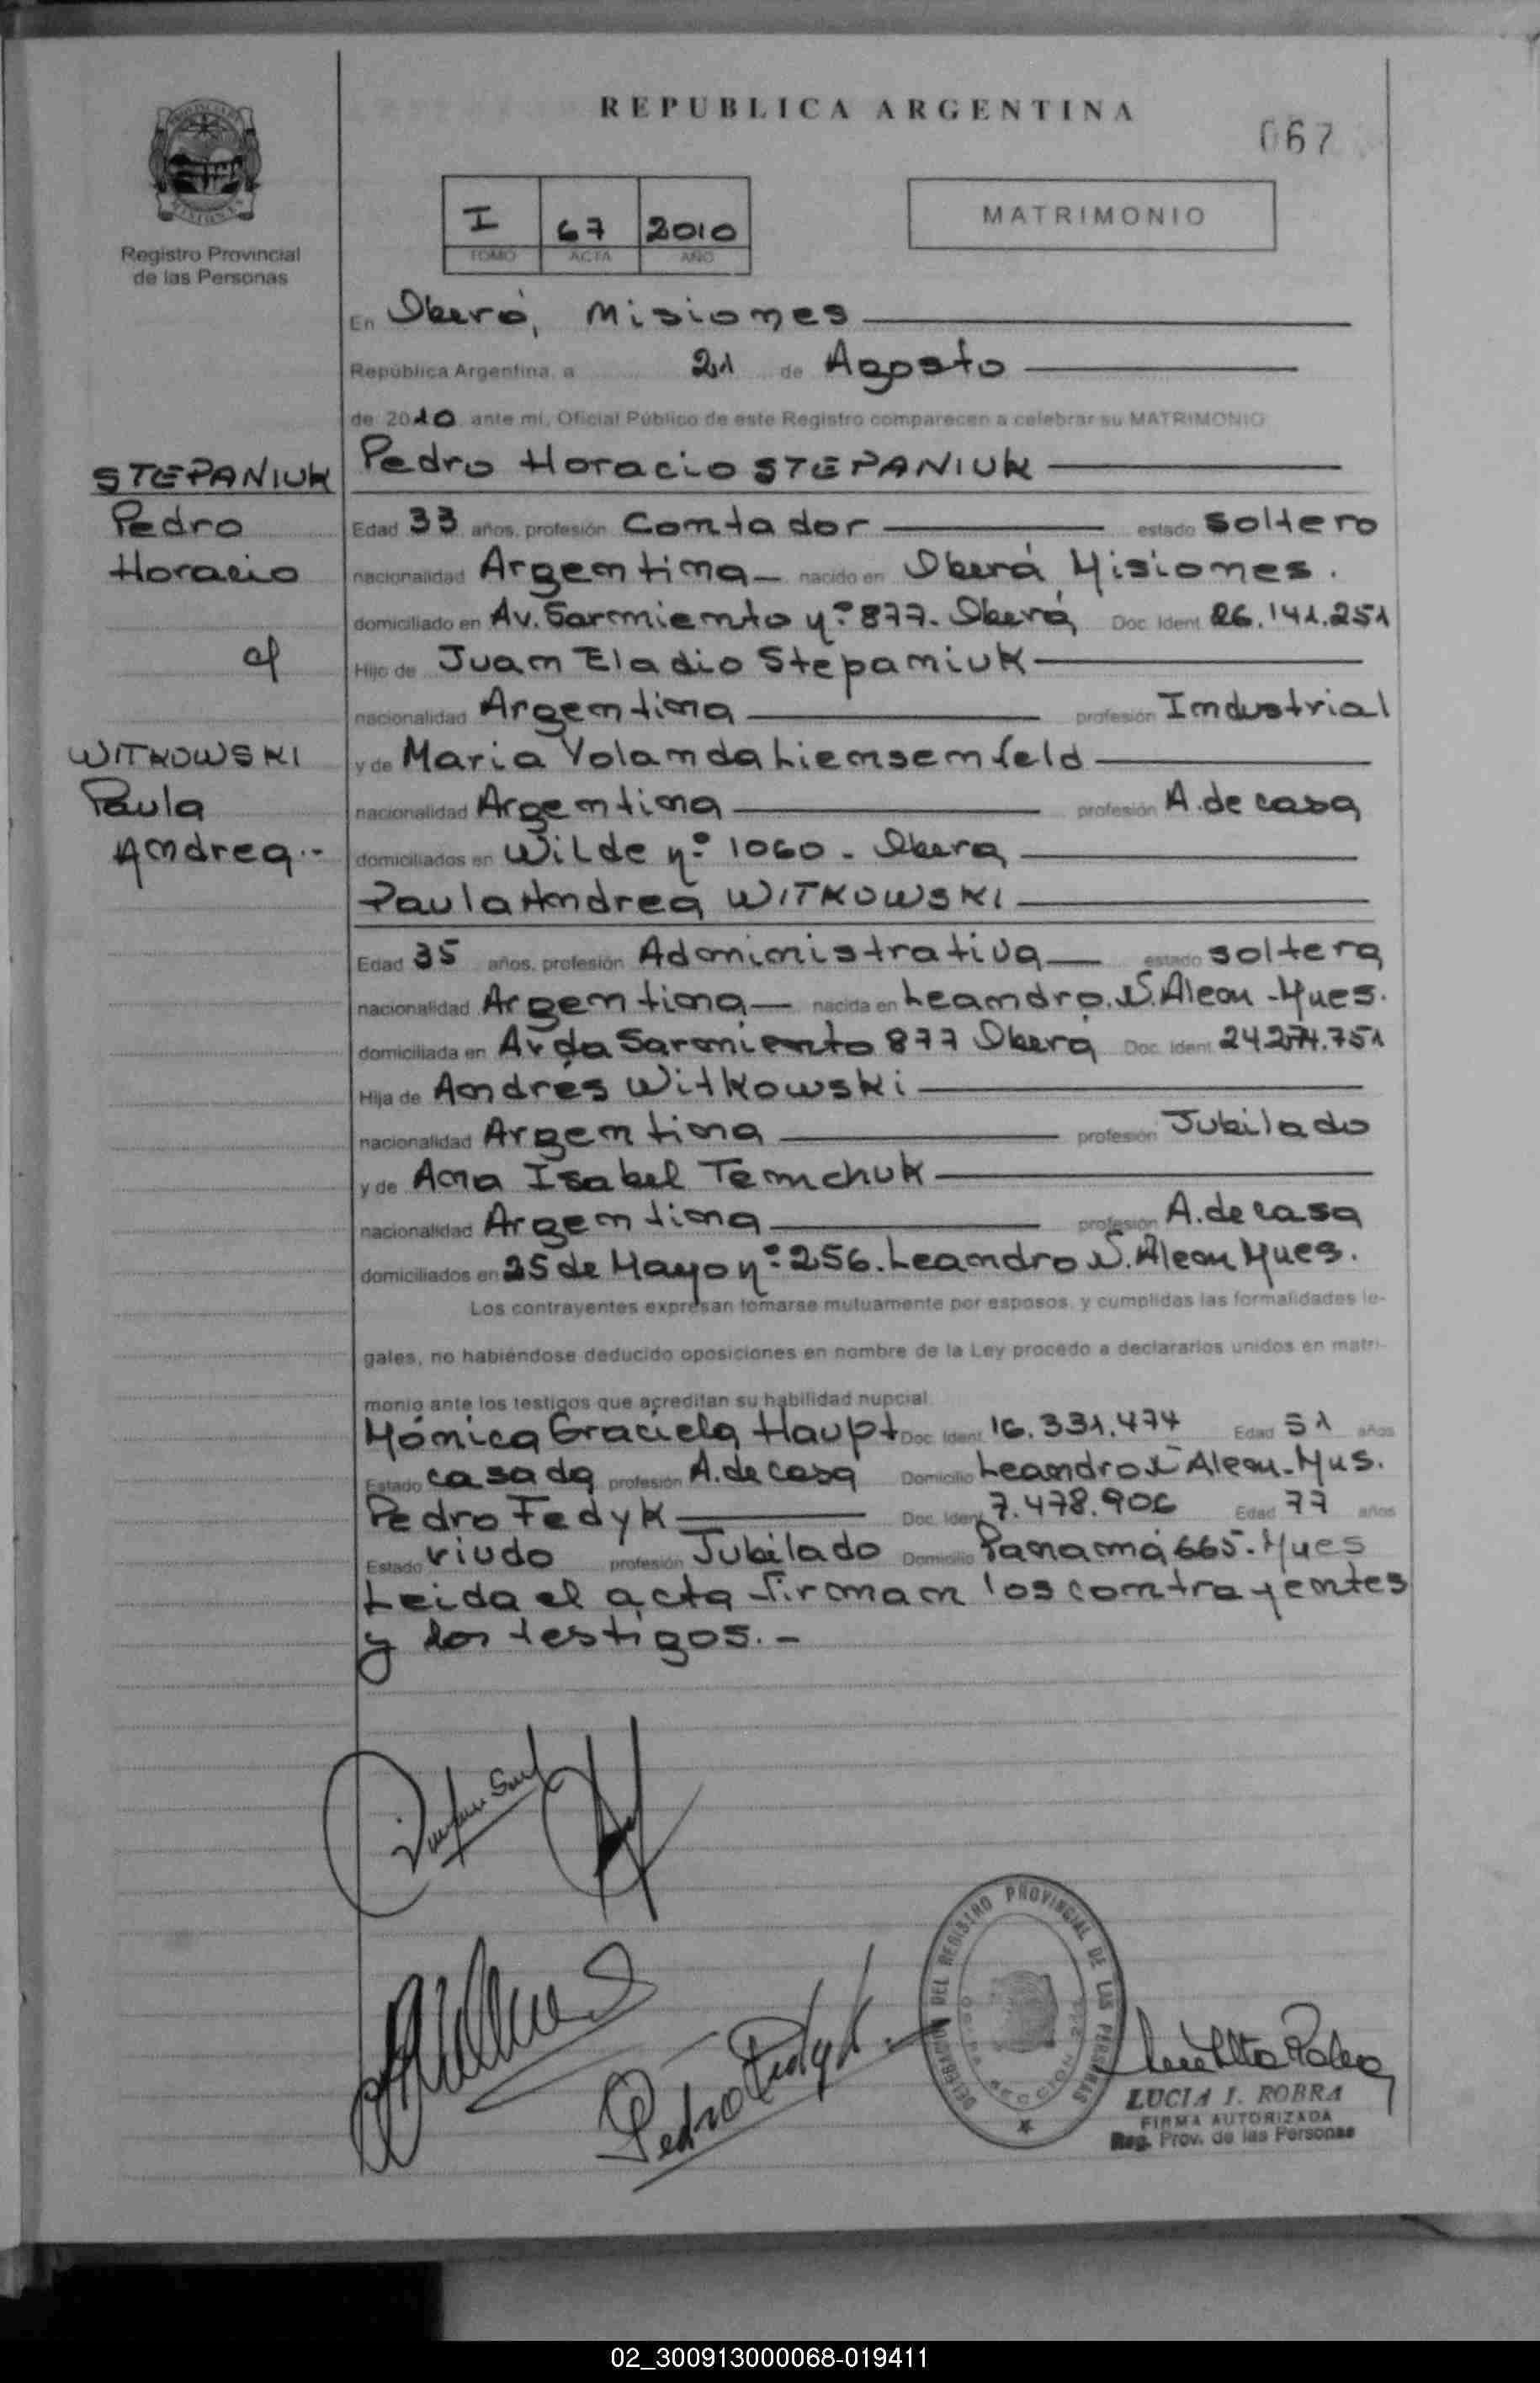 REPUBLICA ARGENTINA
067
I 67 2010
TOMO ACTA AÑO
MATRIMONIO
Registro Provincial
de las Personas
En Oberá, Misiones
República Argentina, a 21 de Agosto
de 2010 ante mi, Oficial Público de este Registro comparecen a celebrar su MATRIMONIO
STEPANIUK
Pedro
Horacio
c/
WITKOWSKI
Paula
Andrea.-
Pedro Horacio STEPANIUK
Edad 33 años, profesión Contador estado soltero
nacionalidad Argentina nacido en Oberá Misiones.
domiciliado en Av. Sarmiento nº 877. Oberá Doc. Ident. 26.141.251
Hijo de Juan Eladio Stepaniuk
nacionalidad Argentina profesión Industrial
y de Maria Yolanda Liensenfeld
nacionalidad Argentina profesión A. de casa
domiciliados en Wilde nº 1060 - Obera
Paula Andrea WITKOWSKI
Edad 35 años, profesión Administrativa estado soltera
nacionalidad Argentina nacida en Leandro. N. Alem - Mnes.
domiciliada en Avda Sarmiento 877 Oberá Doc. Ident. 24.274.751
Hija de Andrés Witkowski
nacionalidad Argentina profesión Jubilado
y de Ana Isabel Temchuk
nacionalidad Argentina profesión A. de casa
domiciliados en 25 de Mayo nº 256. Leandro N. Alem Mnes.
Los contrayentes expresan tomarse mutuamente por esposos, y cumplidas las formalidades le-
gales, no habiéndose deducido oposiciones en nombre de la Ley procedo a declararlos unidos en matri-
monio ante los testigos que acreditan su habilidad nupcial.
Mónica Graciela Haupt Doc. Ident. 16.331.474 Edad 51 años
Estado casada profesión A. de casa Domicilio Leandro N Alem - Mns.
Pedro Fedyk Doc. Ident. 7.478.906 Edad 77 años
Estado viudo profesión Jubilado Domicilio Panamá 665 - Mnes
Leida el acta firman los contrayentes
y los testigos. -
Pedro Fedyk.
DELEGACION DEL REGISTRO PROVINCIAL DE LAS PERSONAS
LUCIA I. ROBRA
FIRMA AUTORIZADA
Reg. Prov. de las Personas
02_300913000068-019411